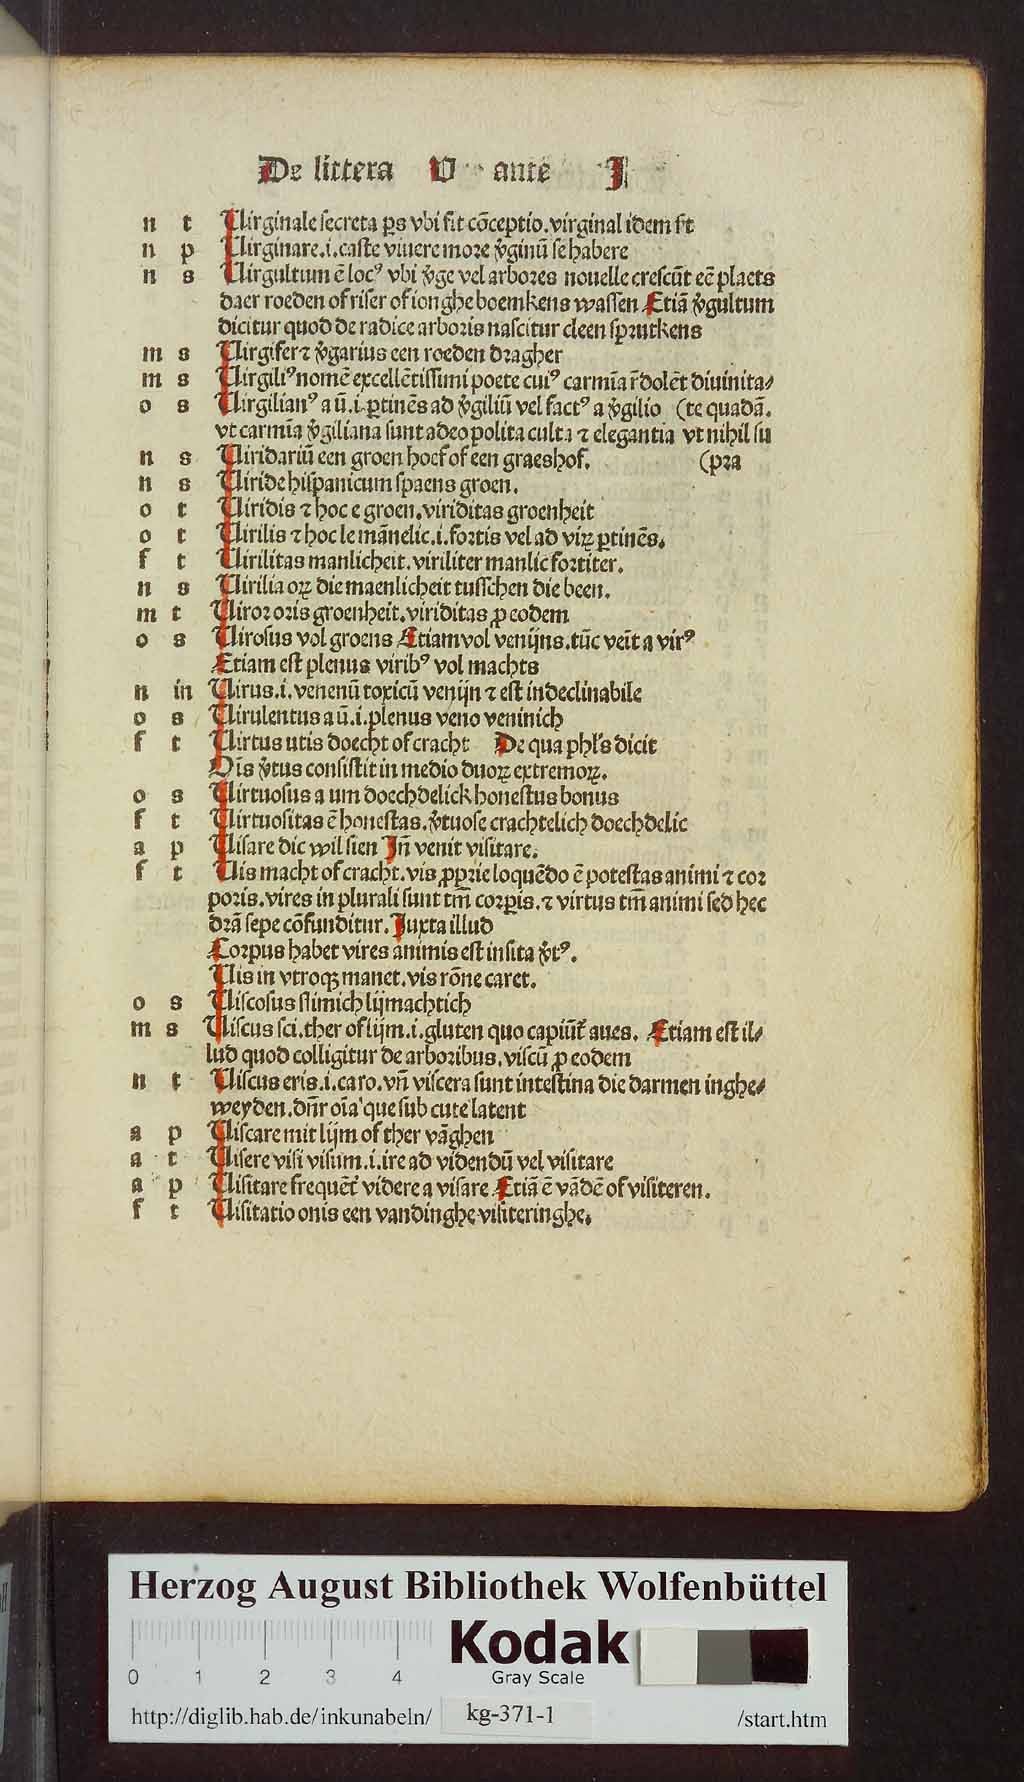 De littera V ante I
n t Uirginale secreta ꝑs vbi fit cōceptio. virginal idem ſt
n p Uirginare .i. caste viuere more v̓ginū se habere
n s Uirgultum ē locꝰ vbi v̓ge vel arbores nouelle crescūt eē plaets
daer roeden of riser of ionghe boemkens wassen Etiā v̓gultum
dicitur quod de radice arboris nascitur cleen sprutkens
m s Uirgifer ⁊ v̓garius een roeden dragher
m s Uirgiliꝰ nomē excellētissimi poete cuiꝰ carmīa r̄dolēt diuinita⸗
o s Uirgilianꝰ a ū .i. ꝑtinēs ad v̓giliū vel factꝰ a v̓gilio (te quadā.
vt carmīa v̓giliana sunt adeo polita culta ⁊ elegantia vt nihil su
n s Uiridariū een groen hoef of een graeshof. (pra
n s Uiride hispanicum spaens groen.
o t Uiridis ⁊ hoc e groen. viriditas groenheit
o t Uirilis ⁊ hoc le mānelic .i. fortis vel ad viꝝ ꝑtinēs.
f t Uirilitas manlicheit. viriliter manlic fortiter.
n s Uirilia oꝝ die maenlicheit tusschen die been.
m t Uiror oris groenheit. viriditas ꝓ eodem
o s Uirosus vol groens Etiam vol venijns. tūc veīt a virꝰ
Etiam est plenus viribꝰ vol machts
n in Uirus .i. venenū toxicū venijn ⁊ est indeclinabile
o s Uirulentus a ū .i. plenus veno veninich
f t Uirtus utis doecht of cracht De qua phl's dicit
Oīs v̓tus consistit in medio duoꝝ extremoꝝ.
o s Uirtuosus a um doechdelick honestus bonus
f t Uirtuositas ē honestas. v̓tuose crachtelich doechdelic
a p Uisare dic wil sien In̄ venit visitare.
f t Uis macht of cracht. vis ꝓprie loquēdo ē potestas animi ⁊ cor
poris. vires in plurali sunt tm̄ corꝑis. ⁊ virtus tm̄ animi sed hec
dr̄a sepe cōfunditur. Juxta illud
Corpus habet vires animis est insita v̓tꝰ.
Uis in vtroqꝫ manet. vis rōne caret.
o s Uiscosus slimich lijmachtich
m s Uiscus sci. ther of lijm .i. gluten quo capiūt̓ aues. Etiam est il⸗
lud quod colligitur de arboribus. viscū ꝓ eodem
n t Uiscus eris .i. caro. vn̄ viscera sunt intestina die darmen inghe⸗
weyden. dn̄r oīa que sub cute latent
a p Uiscare mit lijm of ther vāghen
a t Uisere visi visum .i. ire ad videndū vel visitare
a p Uisitare frequēt̓ videre a visare Etiā ē vādē of visiteren.
f t Uisitatio onis een vandinghe visiteringhe.
Herzog August Bibliothek Wolfenbüttel
0 1 2 3 4
Kodak
Gray Scale
http://diglib.hab.de/inkunabeln/ kg-371-1 /start.htm